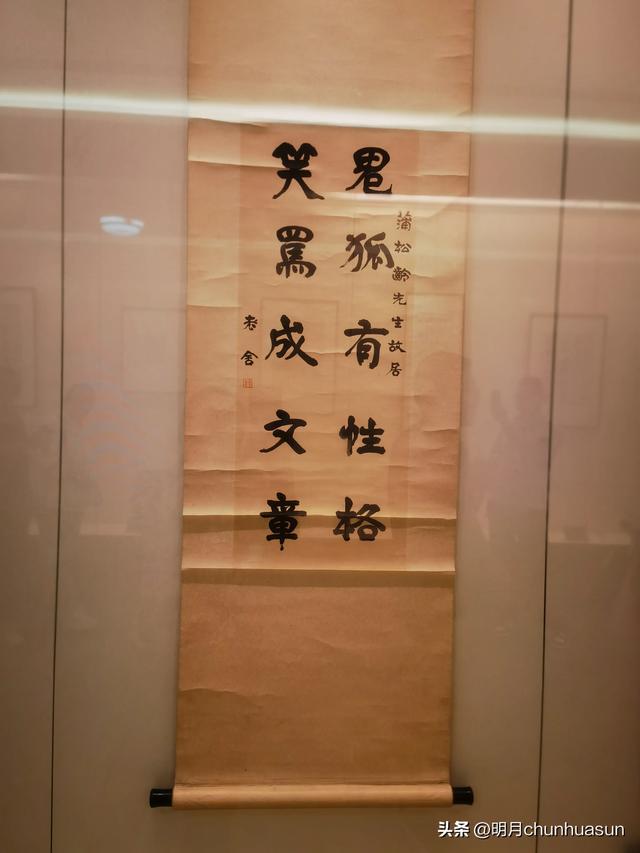 蒲松齡先生故居
鬼狐有性格
笑罵成文章
老舍
头条 @明月chunhuasun